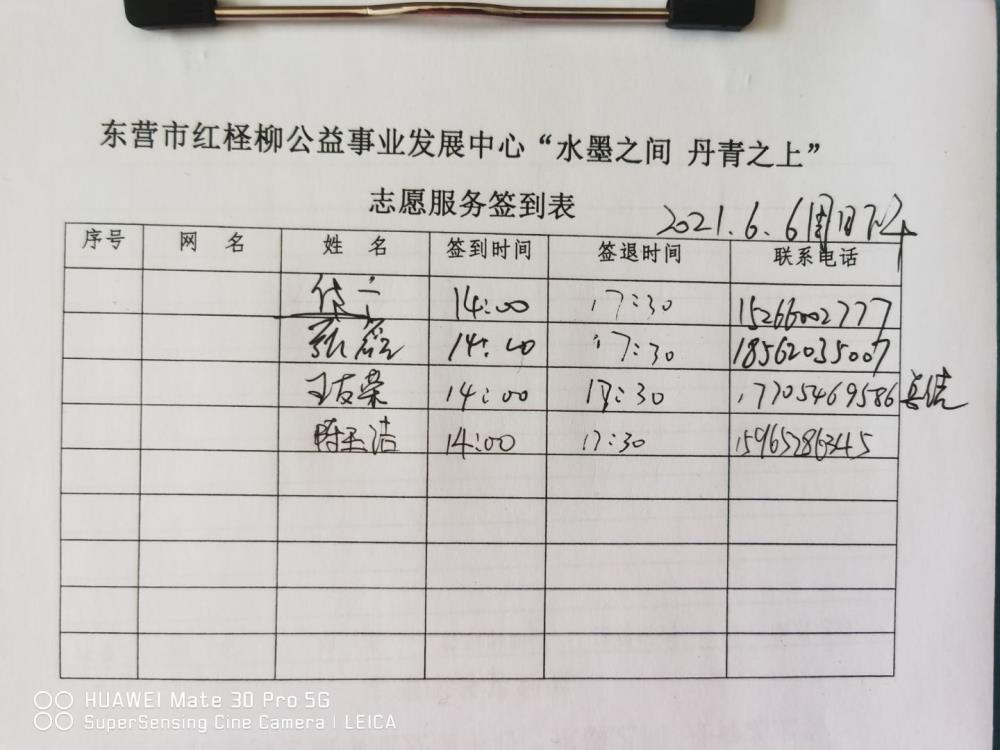 东营市红柽柳公益事业发展中心“水墨之间 丹青之上”
志愿服务签到表
2021.6.6周日下午
序号 网 名 姓 名 签到时间 签退时间 联系电话
14:00 17:30 15266002777
14:00 17:30 18562035007
王友荣 14:00 17:30 17705469586
陈玉洁 14:00 17:30 15965286345
HUAWEI Mate 30 Pro 5G
SuperSensing Cine Camera | LEICA